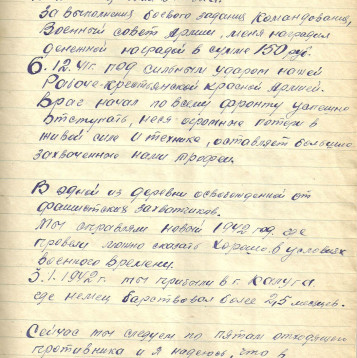 За выполнения боевого задания командования,
Военный совет Армии, меня наградил
денежной наградой в сумме 150 руб.
6.12.41г. под сильным ударом нашей
Рабоче-крестьянской красной Армией.
Враг начал по всему фронту успешно
отступать, неся огромные потери в
живой силе и технике, оставляет большие
захваченные нами трофеи.
В одной из деревни освобожденной от
фашистских захватчиков.
Мы справляем новый 1942 год. где
провели можно сказать хорошо, в условиях
военного времени.
3.1.1942г. мы прибыли в г. Калуга
где немец барствовал более 2,5 месяцев.
Сейчас мы следуем по пятам отходящего
противника и я надеюсь, что в